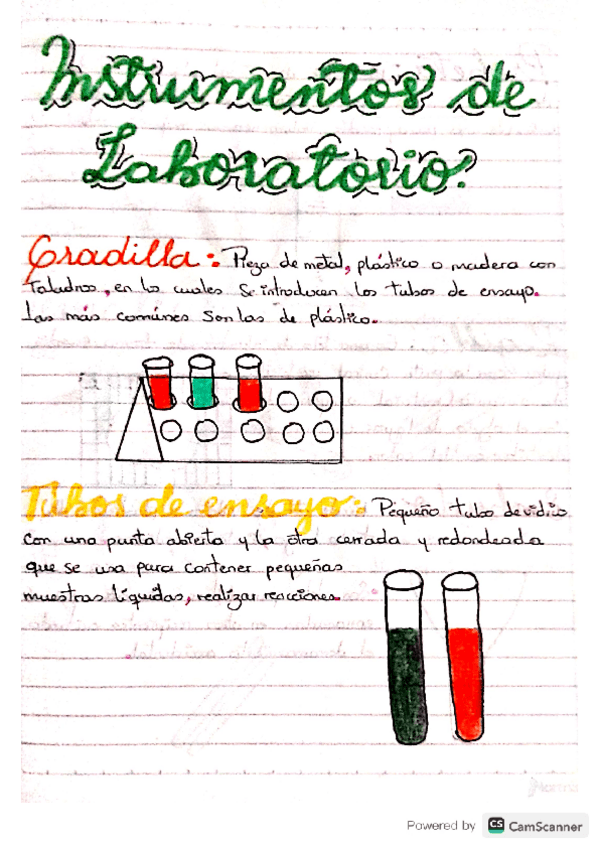 Instrumentos de
Laboratorio.
Gradilla: Pieza de metal, plástico o madera con
Taladros, en los cuales se introducen los tubos de ensayo.
Las más comúnes son las de plástico.
Tubos de ensayo: Pequeño tubo de vidrio
con una punta abierta y la otra cerrada y redondeada
que se usa para contener pequeñas
muestras líquidas, realizar reacciones.
Norma
Powered by CS CamScanner